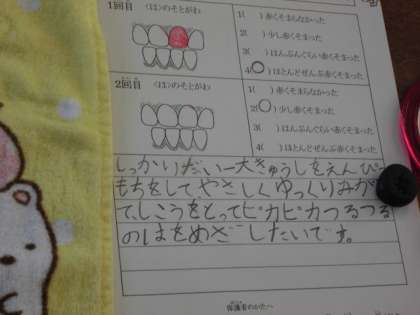 1回目 〈は〉のそとがわ
1( )赤くそまらなかった
2( )少し赤くそまった
3( )はんぶんぐらい赤くそまった
4○)ほとんどぜんぶ赤くそまった
2回目 〈は〉のそとがわ
1( )赤くそまらなかった
2(○)少し赤くそまった
3( )はんぶんぐらい赤くそまった
4( )ほとんどぜんぶ赤くそまった
しっかりだい一大きゅうしをえんぴ
もちをして、やさしくゆっくりみが
て、しこうをとってピカピカつるつる
のはをめざしたいです。
保護者のかたへ